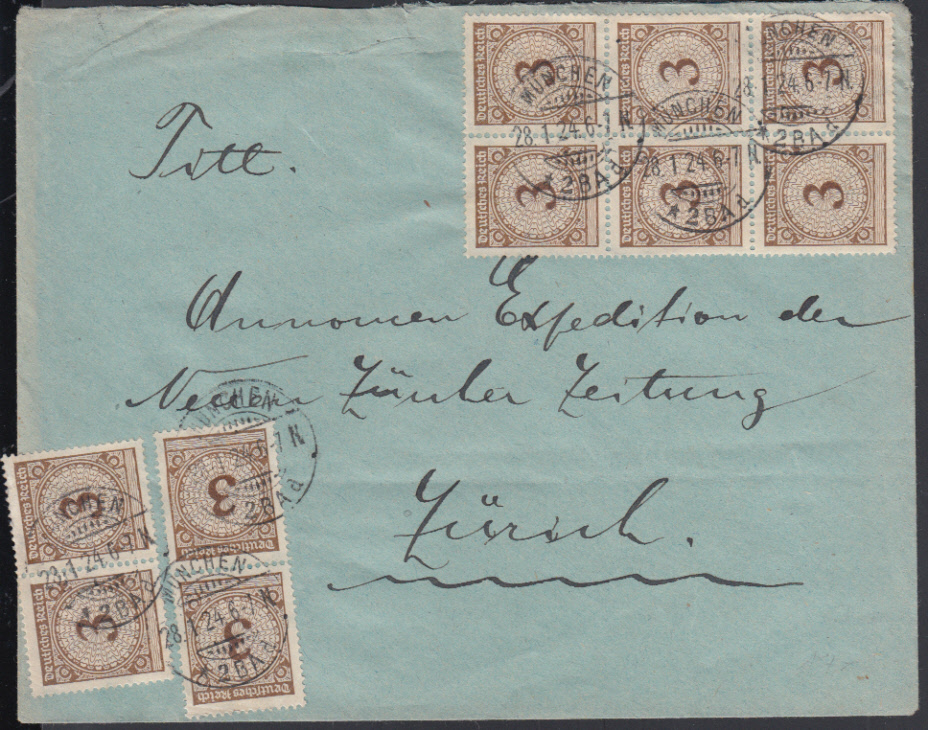 Deutsches Reich 3 Deutsches Reich 3 Deutsches Reich 3
Deutsches Reich 3 Deutsches Reich 3 Deutsches Reich 3
MÜNCHEN
28.1.24.6-7 N
* 2BAd
MÜNCHEN
28.1.24.6-7 N
* 2BAd
MÜNCHEN
28.1.24.6-7 N
* 2BAd
Titt.
Annoncen Expedition der
Neuen Zürcher Zeitung
Zürich.
Deutsches Reich 3
Deutsches Reich 3
Deutsches Reich 3
Deutsches Reich 3
MÜNCHEN
6-7 N
2BAd
MÜNCHEN
28.1.24.6-7 N
* 2BAd
MÜNCHEN
28.1.24.6-7 N
* 2BAd